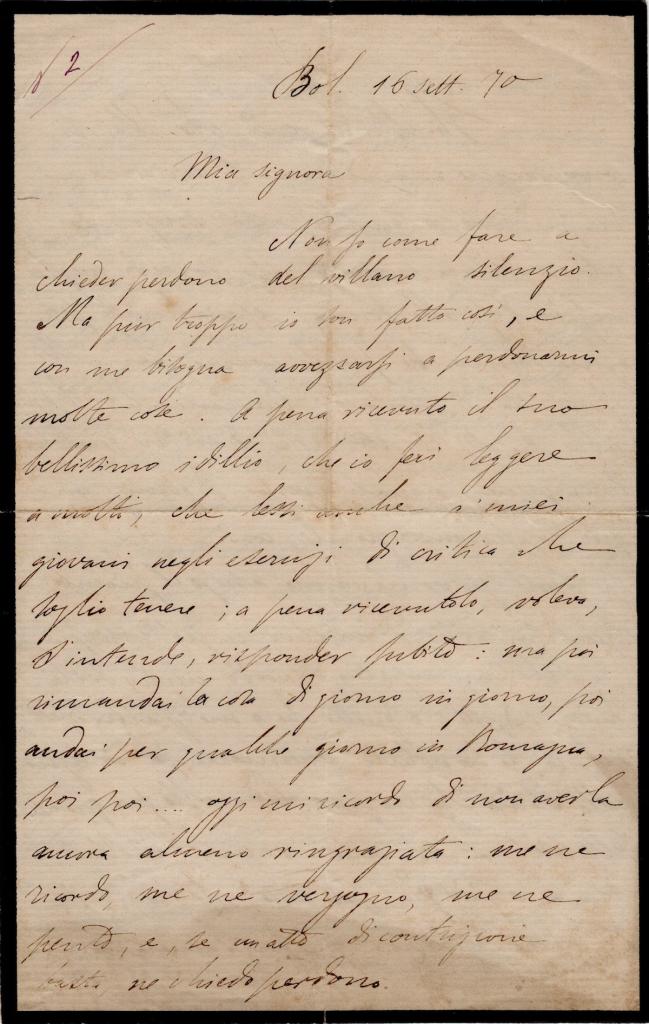 N 2
Bol. 16 sett. 70
Mia signora
Non so come fare a
chieder perdono del villano silenzio.
Ma pur troppo io son fatto così, e
con me bisogna avvezzarsi a perdonarmi
molte cose. A pena ricevuto il suo
bellissimo idillio, che io feci leggere
a molti, che lessi anche a' miei
giovani negli esercizi di critica che
soglio tenere; a pena ricevutolo, voleva,
s'intende, risponder subito: ma poi
rimandai la cosa di giorno in giorno, poi
andai per qualche giorno in Romagna,
poi poi.... oggi mi ricordo di non averla
ancora almeno ringraziata: me ne
ricordo, me ne vergogno, me ne
pento, e, se un atto di contrizione
basta ne chiedo perdono.